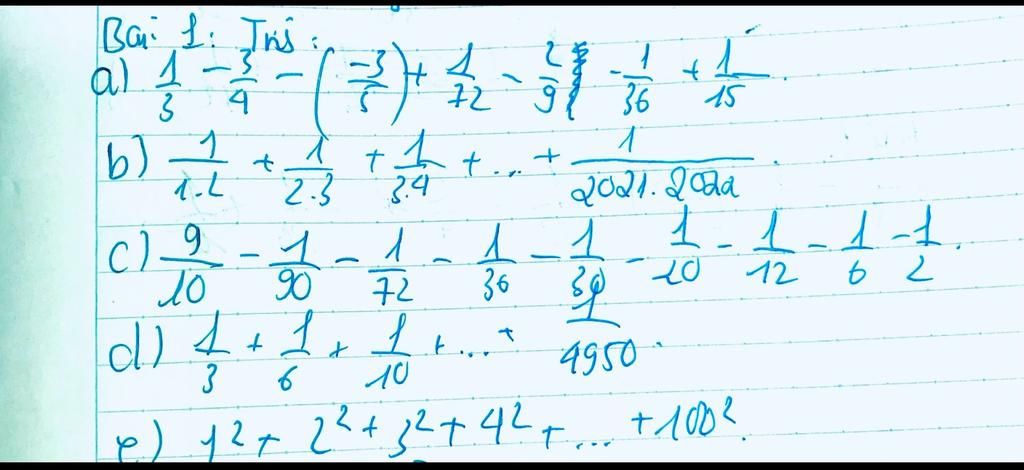 Bài 1: Tính:
a) 1/3 - 3/4 - (-3/5) + 1/72 - 2/9 - 1/36 + 1/15.
b) 1/1.2 + 1/2.3 + 1/3.4 + ... + 1/2021.2022.
c) 9/10 - 1/90 - 1/72 - 1/36 - 1/30 - 1/20 - 1/12 - 1/6 - 1/2.
d) 1/3 + 1/6 + 1/10 + ... + 1/4950.
e) 1² + 2² + 3² + 4² + ... + 100².